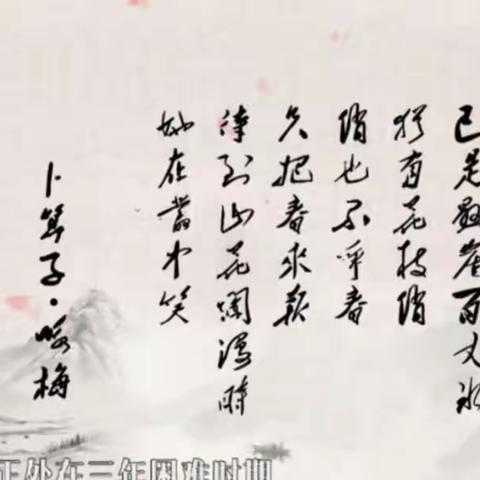 已是悬崖百丈冰
犹有花枝俏
俏也不争春
只把春来报
待到山花爛漫時
她在叢中笑
卜算子·咏梅
正处在三年困难时期